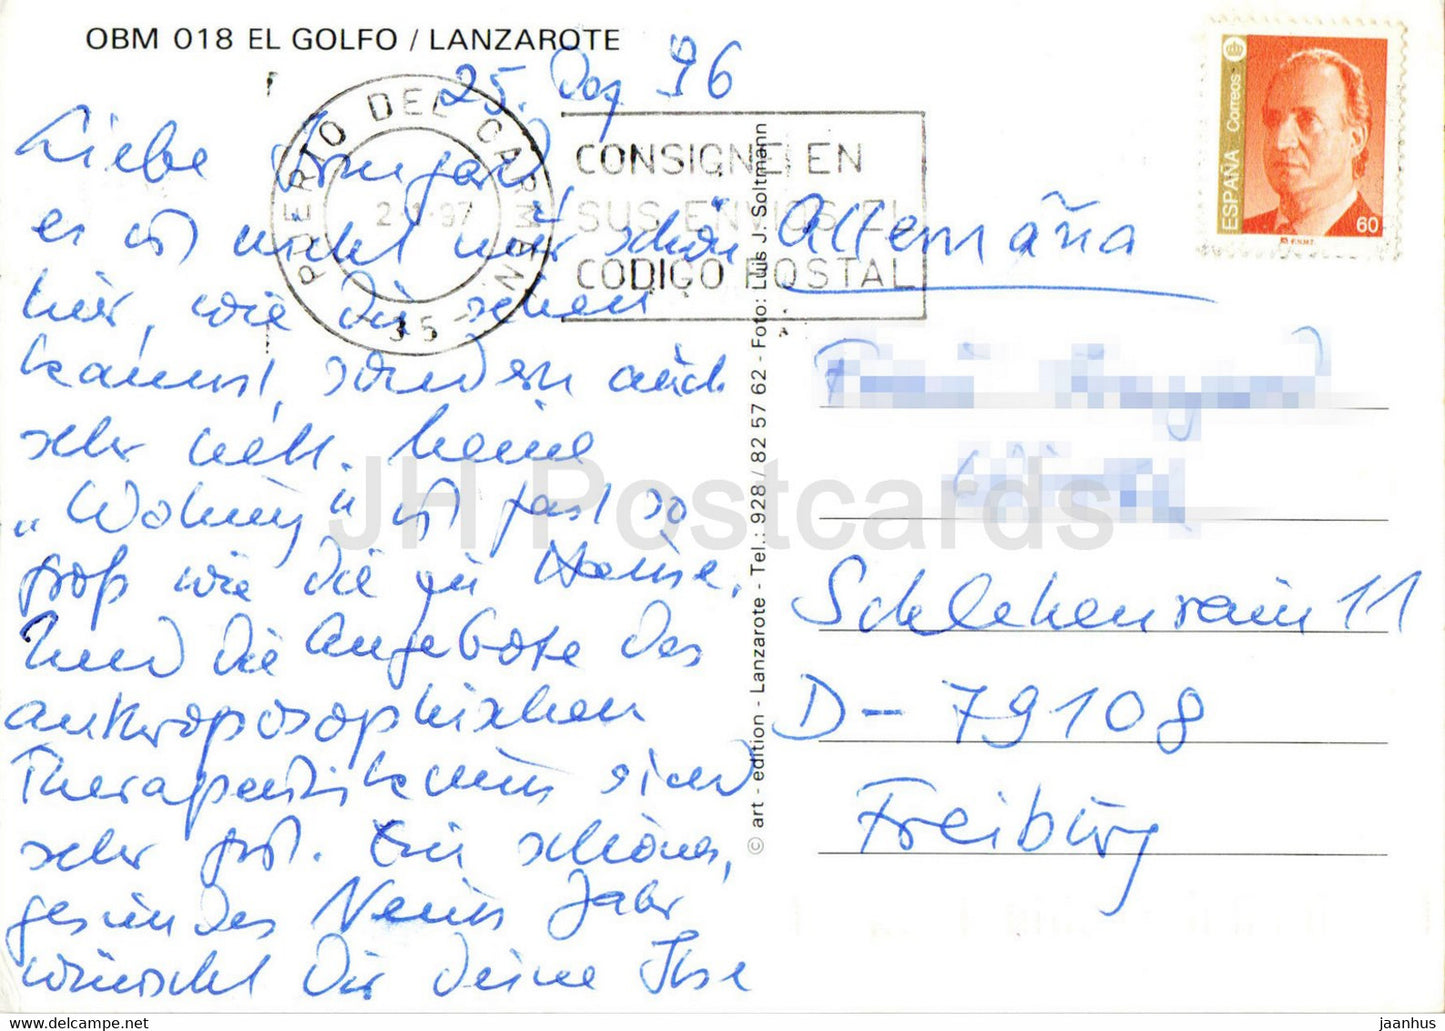 OBM 018 EL GOLFO / LANZAROTE
25. Dez 96
Liebe Irmgard,
es ist nicht nur schön
hier, wie Du sehen
kannst, sondern auch
sehr nett. Meine
„Wohnung" ist fast so
groß wie die zu Hause.
Und die Angebote des
anthroposophischen
Therapeutikums sind
sehr gut. Ein schönes,
gesundes Neues Jahr
wünscht Dir Deine Ilse
PUERTO DEL CARMEN
2-1-97
35
CONSIGNE EN
SUS ENVIOS EL
CODIGO POSTAL
© art - edition - Lanzarote - Tel.: 928 / 82 57 62 - Foto: Luis J. Soltmann
ESPAÑA Correos
60
F.N.M.T.
Allemaña
Schlehenrain 11
D-79108
Freiburg
JH Postcards
http://jhpostcard.ecrater.com/
jaanhus